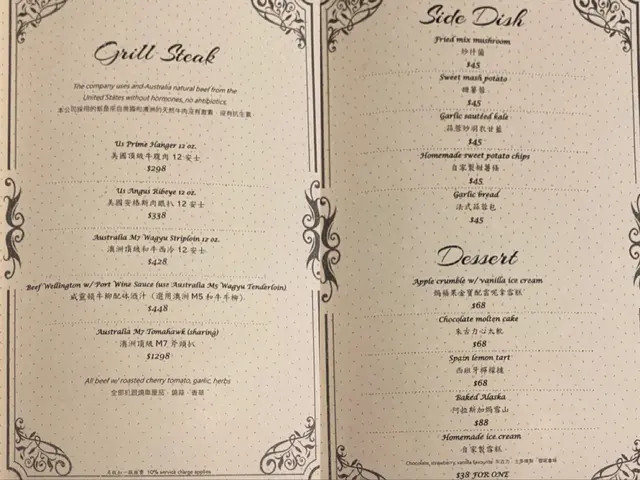 Grill Steak
The company uses and Australia natural beef from the
United States without hormones, no antibiotics.
本公司採用的都是來自美國和澳洲的天然牛肉沒有激素，沒有抗生素
Us Prime Hanger 12 oz.
美國頂級牛腹肉 12 安士
$298
Us Angus Ribeye 12 oz.
美國安格斯肉眼扒 12 安士
$338
Australia M7 Wagyu Striploin 12 oz.
澳洲頂級和牛西冷 12 安士
$428
Beef Wellington w/ Port Wine Sauce (use Australia M5 Wagyu Tenderloin)
威靈頓牛柳配砵酒汁（選用澳洲 M5 和牛牛柳）
$448
Australia M7 Tomahawk (sharing)
澳洲頂級 M7 斧頭扒
$1298
All beef w/ roasted cherry tomato, garlic, herbs
10% service charge applies
Side Dish
Fried mix mushroom
炒仔菌
$45
Sweet mash potato
糖薯蓉
$45
Garlic sautéed kale
蒜蓉炒羽衣甘藍
$45
Homemade sweet potato chips
自家製糖薯條
$45
Garlic bread
法式蒜蓉包
$45
Dessert
Apple crumble w/ vanilla ice cream
焗蘋果金寶配雲呢拿雪糕
$68
Chocolate molten cake
朱古力心太軟
$68
Spain lemon tart
西班牙檸檬撻
$68
Baked Alaska
阿拉斯加焗雪山
$88
Homemade ice cream
自家製雪糕
Chocolate, strawberry, vanilla favourite
$38 FOR ONE